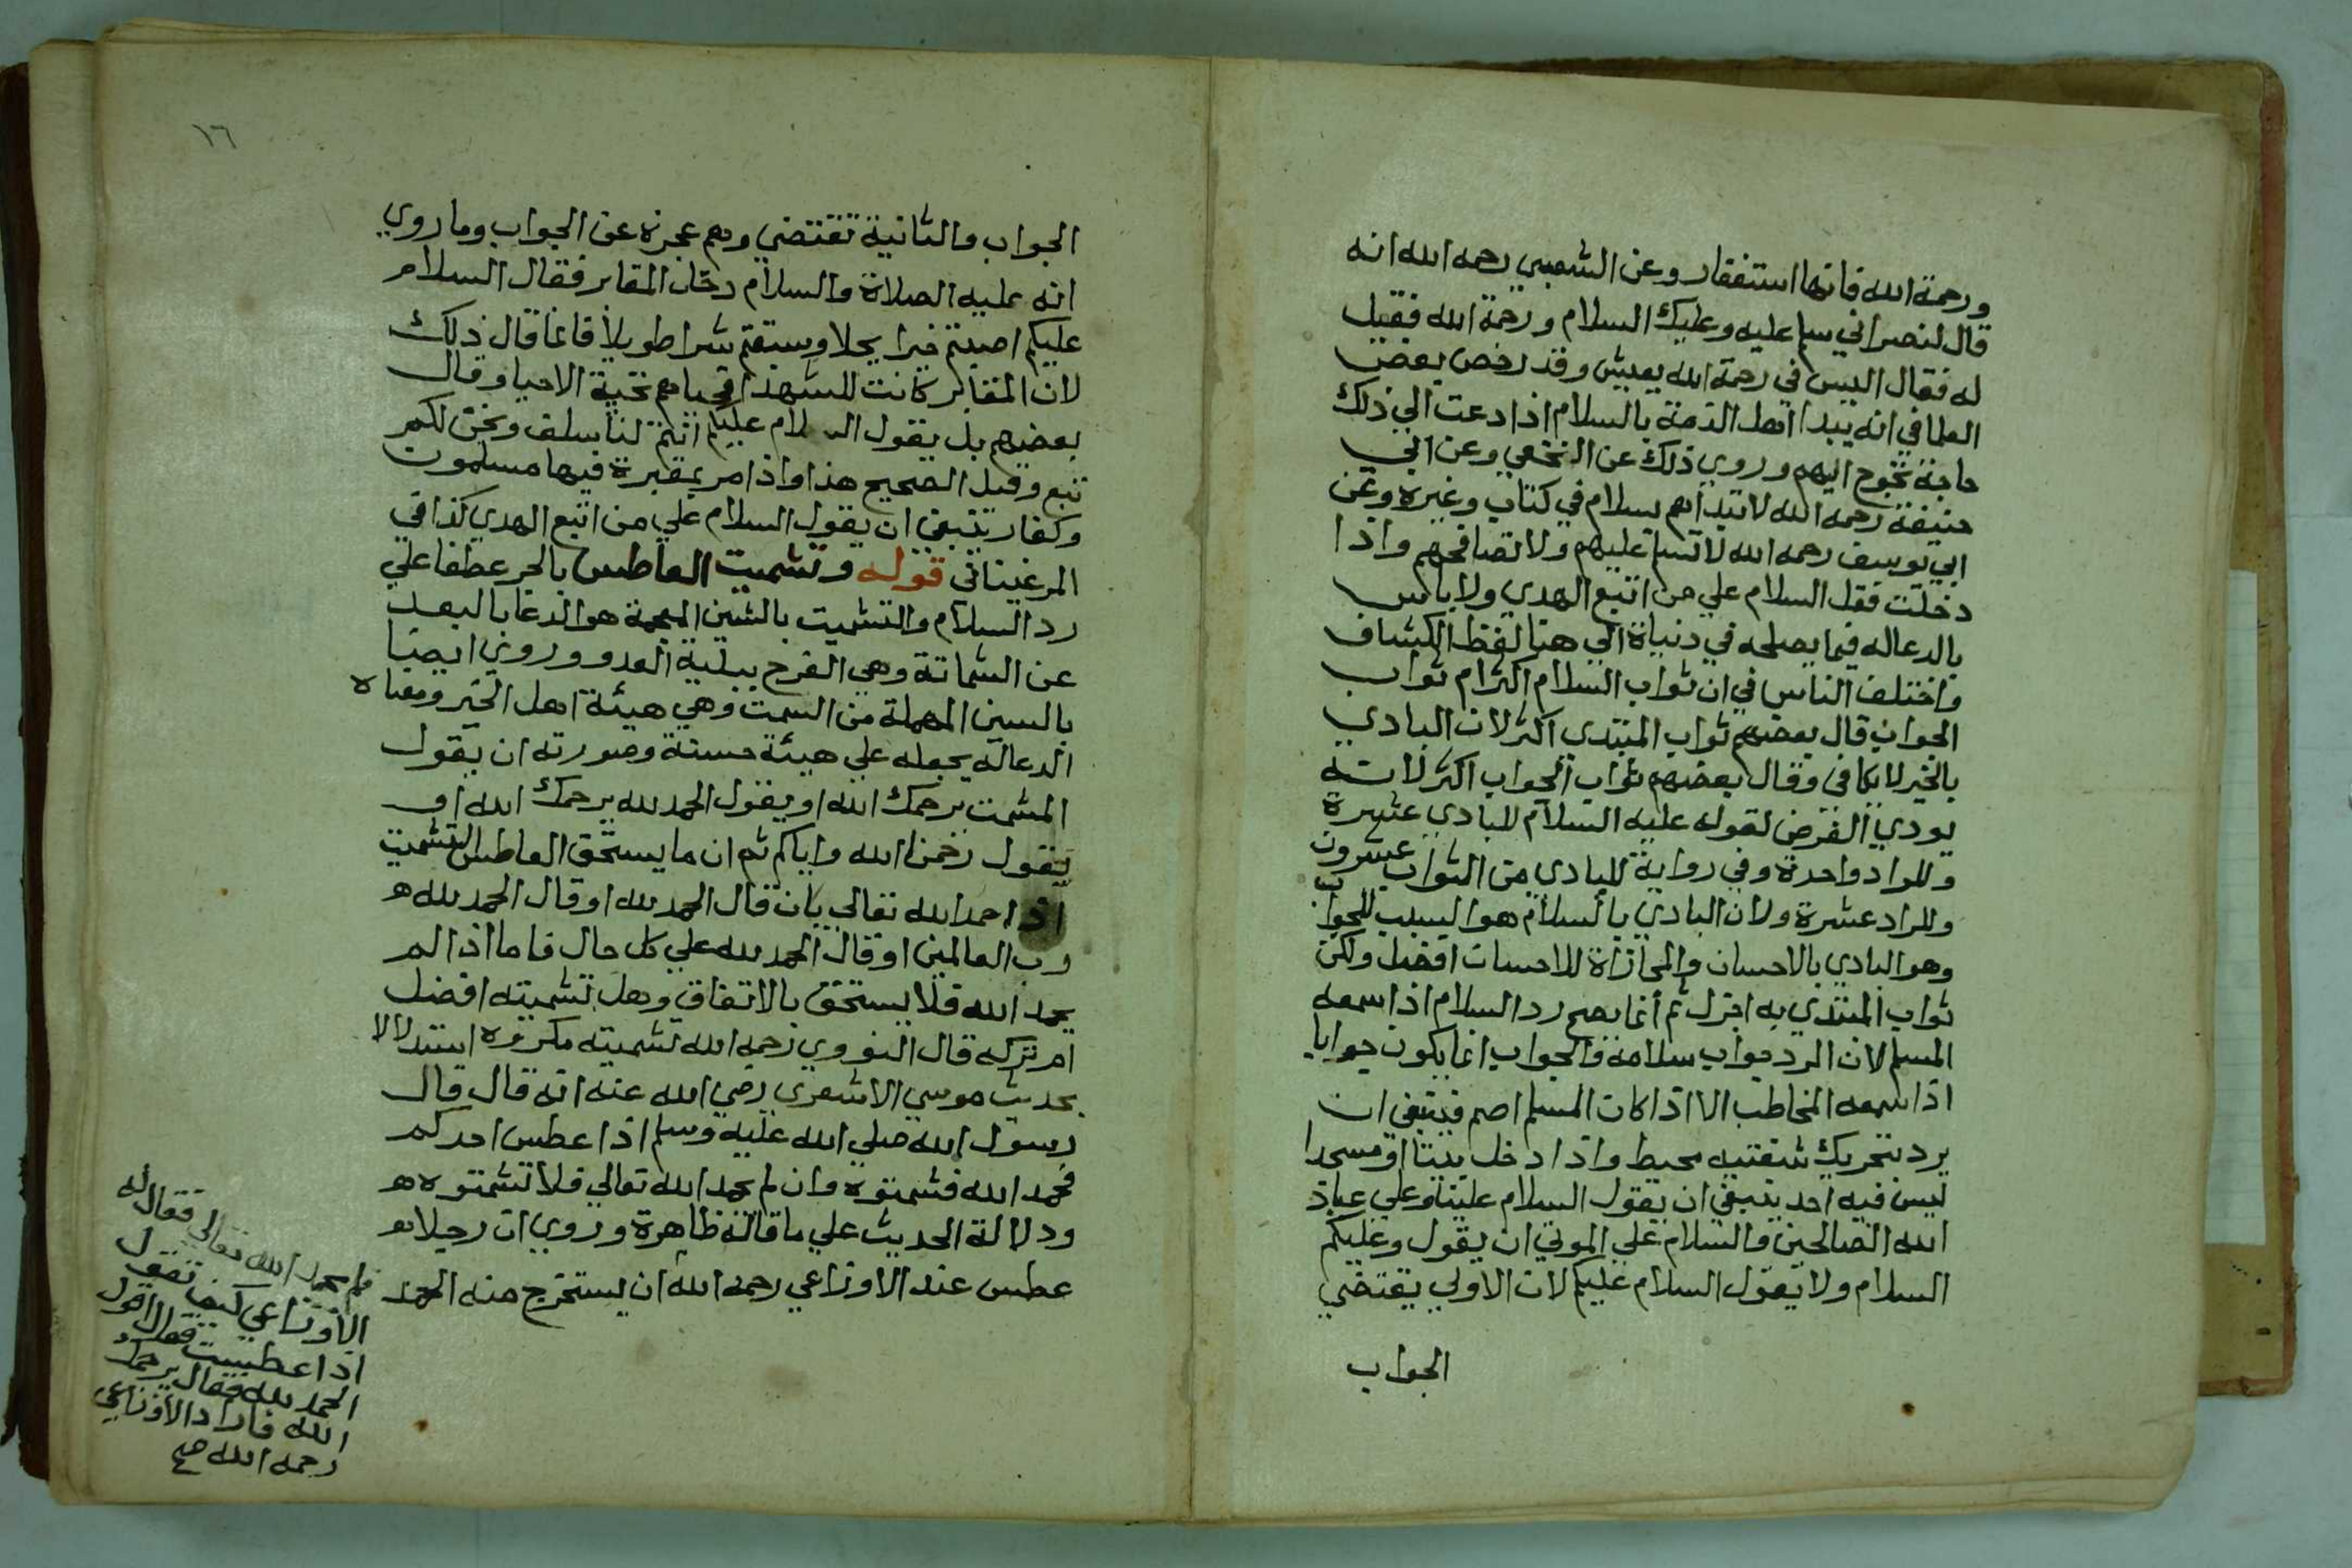 ورحمة الله فانها استغفار وعن الشعبي رحمه الله انه
قال لنصراني سلم عليه وعليك السلام ورحمة الله فقيل
له فقال اليس في رحمة الله يعيش وقد رخص بعض
العلما في انه يبدا اهل الذمة بالسلام اذا دعت الي ذلك
حاجة تحوج اليهم وروي ذلك عن النخعي وعن ابي
حنيفة رحمه الله لا تبداهم بسلام في كتاب وغيره وعن
ابي يوسف رحمه الله لا تسلم عليهم ولا تصافحهم واذا
دخلت فقل السلام علي من اتبع الهدي ولا باس
بالدعا له فيما يصلحه في دنياه الي هنا لفظ الكشاف
واختلف الناس في ان ثواب السلام اكثر ام ثواب
الجواب قال بعضهم ثواب المبتدي اكثر لان البادي
بالخير لا يكافى وقال بعضهم ثواب الجواب اكثر لانه
يودي الفرض لقوله عليه السلام للبادي عشرة
وللراد واحدة وفي رواية للبادي من الثواب عشرون
وللراد عشرة ولان البادي بالسلام هو السبب للجواب
وهو البادي بالاحسان والمجازاة للاحسان افضل ولكن
ثواب المبتدي به اجزل ثم أنما يصح رد السلام اذا سمعه
المسلم لان الرد جواب سلامه والجواب انما يكون جوابا
اذا سمعه المخاطب الا اذا كان المسلم اصم فينبغي ان
يرد بتحريك شفتيه محيط واذا دخل بيتا او مسجدا
ليس فيه احد ينبغي ان يقول السلام علينا وعلي عباد
الله الصالحين والسلام علي الموتي ان يقول وعليكم
السلام ولا يقول السلام عليكم لان الاولي يقتضي
الجواب
١٦
الجواب والثانية تقتضي وهم عجزة عن الجواب وما روي
انه عليه الصلاة والسلام دخل المقابر فقال السلام
عليكم اصبتم خيرا بجلا وسبقتم شرا طويلا فانما قال ذلك
لان المقابر كانت للشهدا فحياهم تحية الاحيا وقال
بعضهم بل يقول السلام عليكم انتم لنا سلف ونحن لكم
تبع وقيل الصحيح هذا واذا مر بمقبرة فيها مسلمون
وكفار ينبغي ان يقول السلام علي من اتبع الهدي كذا في
المرغيناني قوله وتشميت العاطس بالجر عطفا علي
رد السلام والتشميت بالشين المعجمة هو الدعا بالبعد
عن الشماتة وهي الفرح ببلية العدو وروي ايضا
بالسين المهملة من السمت وهي هيئة اهل الخير ومعناه
الدعا له يجعله علي هيئة حسنة وصورته ان يقول
المشمت يرحمك الله او يقول الحمد لله يرحمك الله او
يقول رحمنا الله واياكم ثم ان ما يستحق العاطس التشميت
اذا حمد الله تعالي بان قال الحمد لله او قال الحمد لله
رب العالمين او قال الحمد لله علي كل حال فاما اذا لم
يحمد الله فلا يستحق بالاتفاق وهل تشميته افضل
ام تركه قال النووي رحمه الله تشميته مكروه استدلالا
بحديث موسي الاشعري رضي الله عنه انه قال قال
رسول الله صلي الله عليه وسلم اذا عطس احدكم
فحمد الله فشمتوه وان لم يحمد الله تعالي فلا تشمتوه
ودلالة الحديث علي ما قاله ظاهرة وروي ان رجلا
عطس عند الاوزاعي رحمه الله ان يستخرج منه الحمد
فلم يحمد الله تعالي فقال له
الاوزاعي كيف تقول
اذا عطست فقال اقول
الحمد لله فقال يرحمك
الله فاراد الاوزاعي
رحمه الله صح